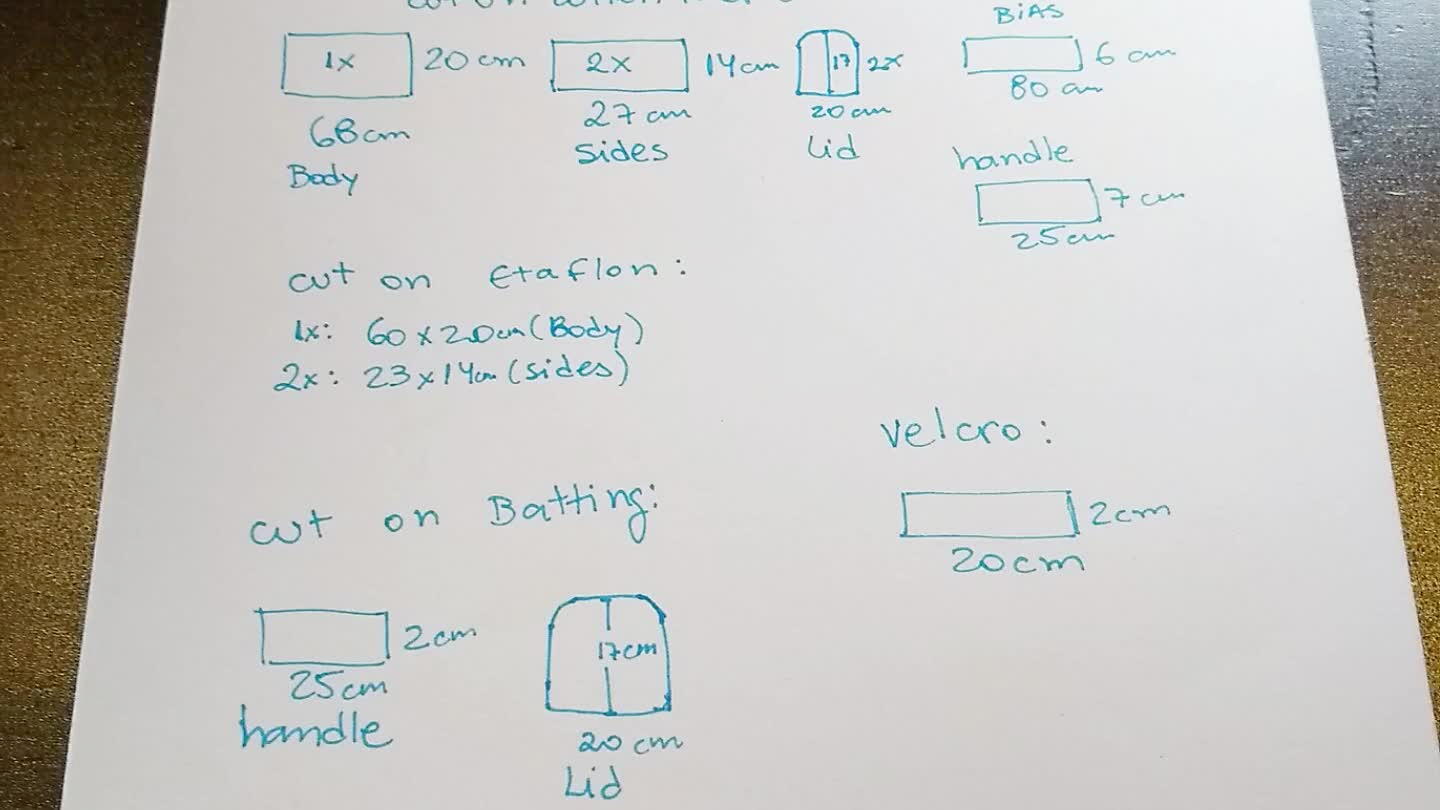 BiAS
1x 20 cm
68 cm
Body
2x 14 cm
27 cm
Sides
17 2x
20 cm
Lid
6 cm
80 cm
handle
7 cm
25 cm
cut on Etaflon:
1x: 60 x 20 cm (Body)
2x: 23 x 14 cm (sides)
velcro:
2 cm
20 cm
cut on Batting:
2 cm
25 cm
handle
17 cm
20 cm
Lid